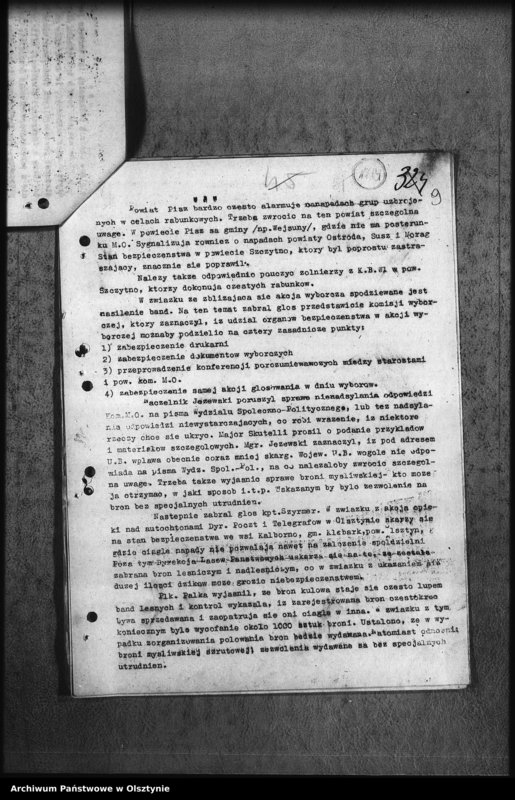 45
324
9
Powiat Pisz bardzo czesto alarmuje o napadach grup uzbrojo-
nych w celach rabunkowych. Trzeba zwrocic na ten powiat szczegolna
uwage. W powiecie Pisz sa gminy /np.Wejsuny/, gdzie nie ma posterun-
ku M.O. Sygnalizuja rowniez o napadach powiaty Ostróda, Susz i Morag
Stan bezpieczenstwa w powiecie Szczytno, ktory byl poprostu zastra-
szajacy, znacznie sie poprawil.
Nalezy takze odpowiednio pouczyc zolnierzy z K.B.W. w pow.
Szczytno, ktorzy dokonuja czestych rabunkow.
W zwiazku ze zblizajaca sie akcja wyborcza spodziewane jest
nasilenie band. Na ten temat zabral glos przedstawiciel komisji wybor-
czej, ktory zaznaczyl, iz udzial organow bezpieczenstwa w akcji wy-
borczej moznaby podzielic na cztery zasadnicze punkty:
1) zabezpieczenie drukarni
2) zabezpieczenie dokumentow wyborczych
3) przeprowadzenie konferencji porozumiewawczych miedzy starostami
i pow. kom. M.O.
4) zabezpieczenie samej akcji glosowania w dniu wyborow.
Naczelnik Jezewski poruszyl sprawe nienadsylania odpowiedzi
Kom.M.O. na pisma Wydzialu Spoleczno-Politycznego, lub tez nadsyla-
nia odpowiedzi niewystarczajacych, co robi wrazenie, iz niektore
rzeczy chce sie ukryc. Major Skutelli prosil o podanie przykladow
i materialow szczegolowych. Mgr. Jezewski zaznaczyl, iz pod adresem
U.B. wplywa obecnie coraz mniej skarg. Wojew. U.B. wogole nie odpo-
wiada na pisma Wydz. Spol.-Pol., na co nalezaloby zwrocic szczegol-
na uwage. Trzeba takze wyjasnic sprawe broni mysliwskiej- kto moze
ja otrzymac, w jaki sposob i.t.p. Wskazanym by bylo zezwolenie na
bron bez specjalnych utrudnien.
Nastepnie zabral glos kpt.Szyrmer. W zwiazku z akcja opie-
ki nad autochtonami Dyr. Poczt i Telegrafow w Olsztynie skarzy sie
na stan bezpieczenstwa we wsi Kalborno, gm. Klebark,pow. Olsztyn,
gdzie ciagle napady nie pozwalaja nawet na zalozenie spoldzielni
Poza tym Dyrekcja Lasow Panstwowych uskarza sie na to, ze zostala
zabrana bron lesniczym i nadlesniczym, co w zwiazku z ukazaniem sie
duzej ilosci dzikow moze grozic niebezpieczenstwem.
Plk. Palka wyjasnil, ze bron kulowa staje sie czesto lupem
band lesnych i kontrol wykazala, iz zarejestrowana bron czestokroc
bywa sprzedawana i zaopatruja sie oni ciagle w inna. W zwiazku z tym
koniecznym bylo wycofanie okolo 1000 sztuk broni. Ustalono, ze w wy-
padku zorganizowania polowania bron bedzie wydawana. Natomiast odnosnie
broni mysliwskiej szrutowej zezwolenia wydawane sa bez specjalnych
utrudnien.
Archiwum Państwowe w Olsztynie